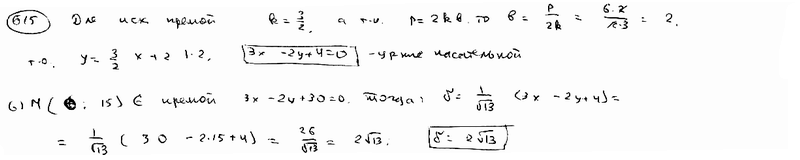 615 Для иск прямой k = 3/2, а т.к. p = 2kb, то b = p/2k = 6·2/2·3 = 2.
т.о. y = 3/2 x + 2 | · 2, 3x - 2y + 4 = 0 - ур-ние касательной
6) M( ; 15) ∈ прямой 3x - 2y + 30 = 0. Тогда: δ = 1/√13 (3x - 2y + 4) =
= 1/√13 (30 - 2·15 + 4) = 26/√13 = 2√13. δ = 2√13